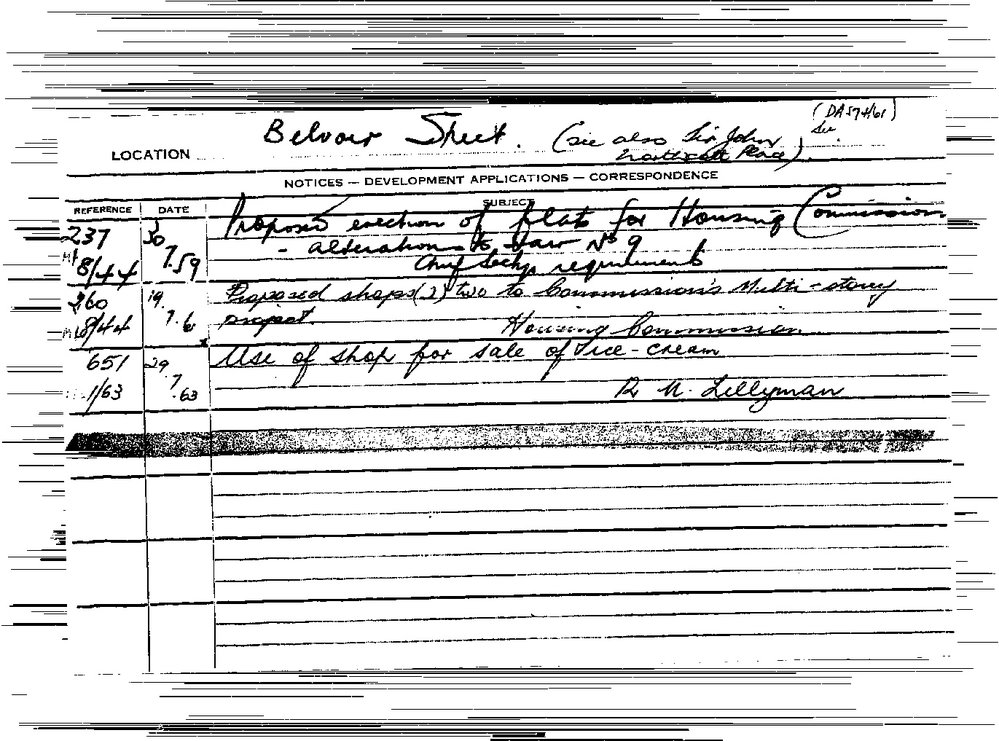 (DA 574/61)
Belvoir Street. (see also Sir John
LOCATION Northcott Place).
NOTICES — DEVELOPMENT APPLICATIONS — CORRESPONDENCE
REFERENCE DATE SUBJECT
237 30 Proposed erection of flats for Housing Commission
8/44 7.59 - alterations to
requirements
260 19. Proposed shops (2) two to Commission's Multi-storey
8/44 7.6 project. Housing Commission
651 29 Use of shop for sale of Ice-cream
1/63 7.63 R. N. Lellyman